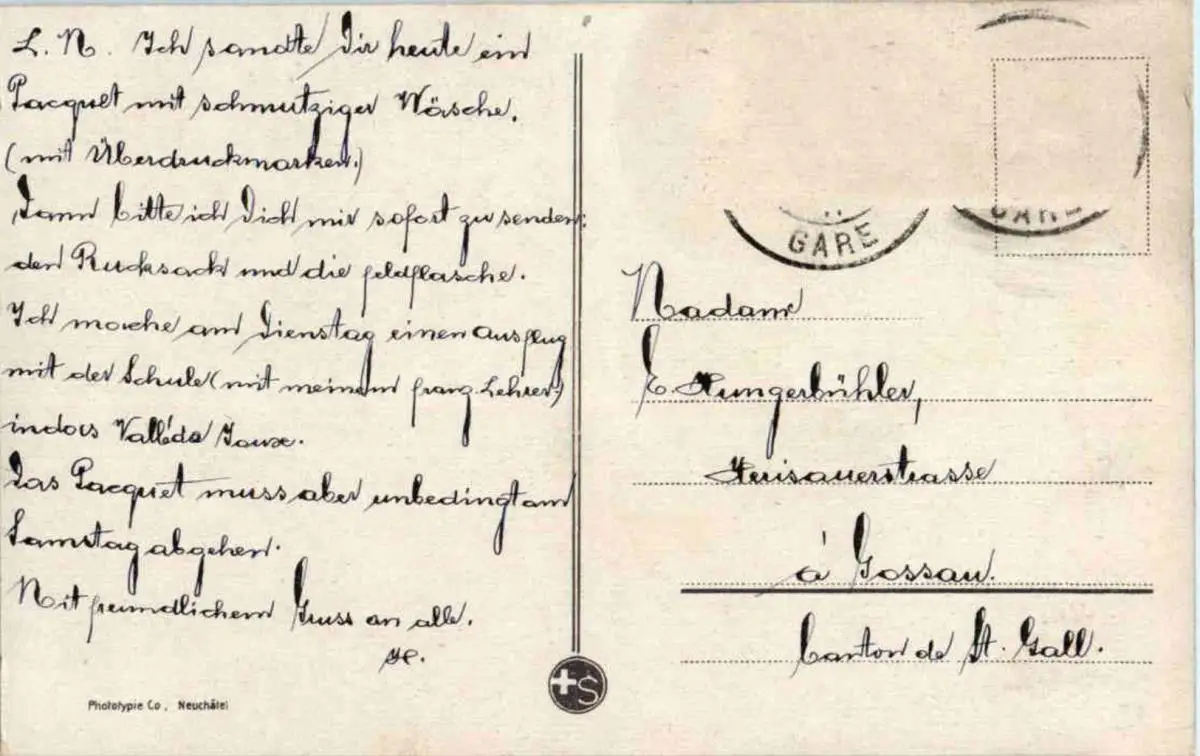 L. M. Ich sandte Dir heute ein
Pacquet mit schmutziger Wäsche.
(mit Überdruckmarken.)
Dann bitte ich Dich mir sofort zu senden:
den Rucksack und die Feldflasche.
Ich mache am Dienstag einen Ausflug
mit der Schule (mit meinem franz. Lehrer)
in das Vallé de Joux.
Das Pacquet muss aber unbedingt am
Samstag abgehen.
Mit freundlichem Gruss an alle.
H.
Phototypie Co., Neuchâtel
S
GARE
GARE
Madame
E. Hungerbühler,
Herisauerstrasse
à Gossau.
Canton de St. Gall.